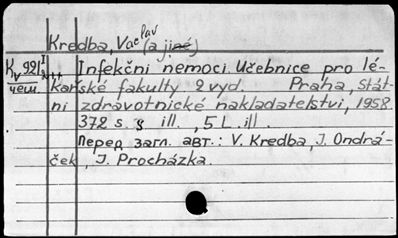 Kredba, Vaclav (a jiné)
Kv 921 Infekční nemoci. Učebnice pro lé-
чеш. kařské fakulty 2 vyd. Praha, Stát-
ní zdravotnické nakladatelství, 1958.
372 s. s ill., 5 L. ill.
Перед загл. авт.: V. Kredba, J. Ondrá-
ček, J. Procházka.